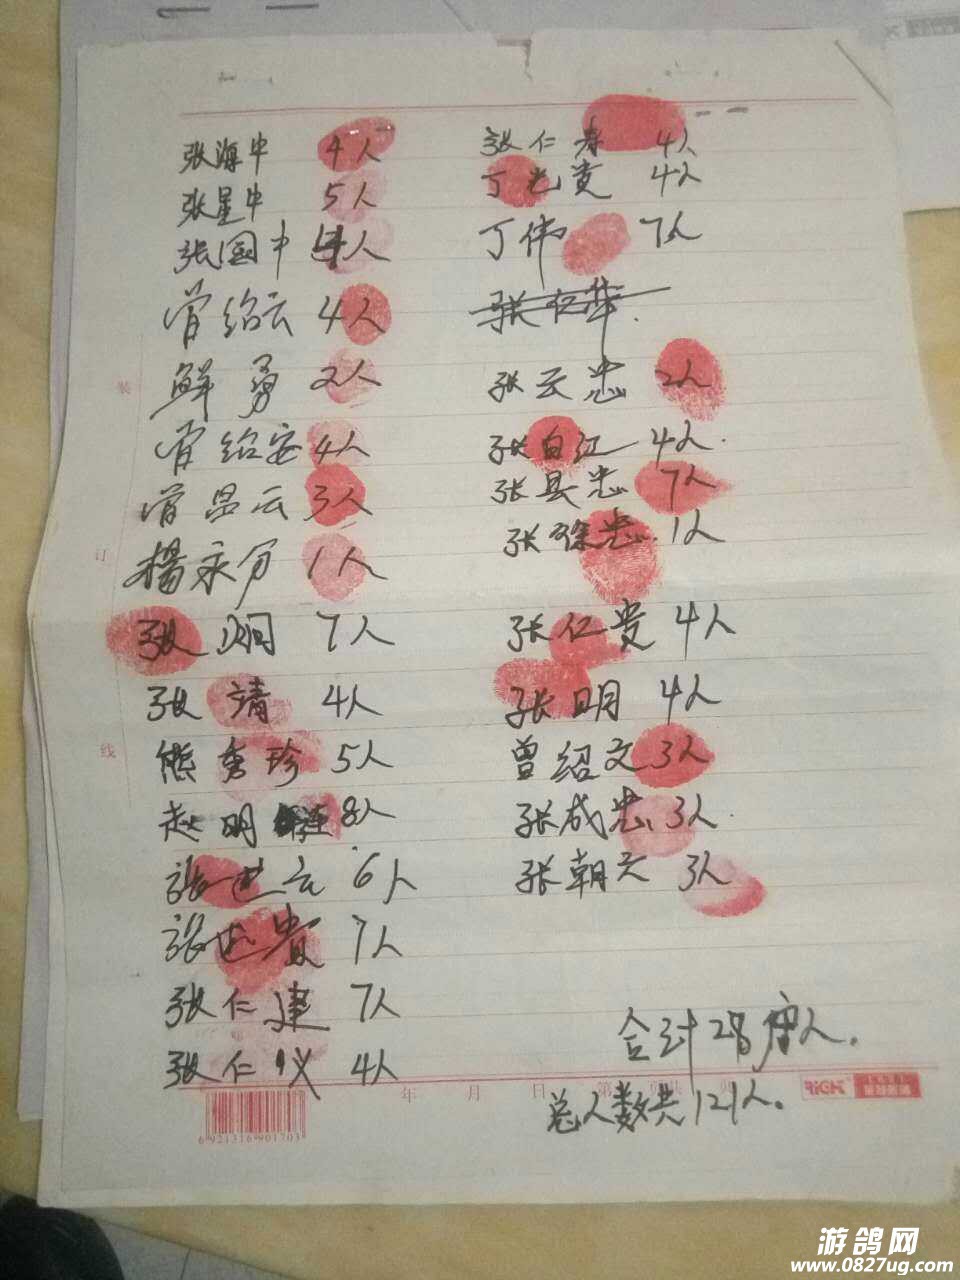 张海中 4人
张星中 5人
张国中 4人
曾绍云 4人
鲜勇 2人
曾绍安 4人
曾显云 3人
杨永芬 1人
张炯 7人
张靖 4人
熊秀珍 5人
赵明 8人
张世云 6人
张世贵 1人
张仁建 7人
张仁仪 4人
张仁寿 4人
丁光贵 4人
丁伟 7人
张仁华
张云忠 2人
张白江 4人
张县忠 7人
张徐忠 1人
张仁贵 4人
张明 4人
曾绍文 3人
张成忠 3人
张朝云 3人
合计28户人.
总人数共121人.
装
订
线
年 月 日 第
6921316901703
游鸽网
www.0827ug.com